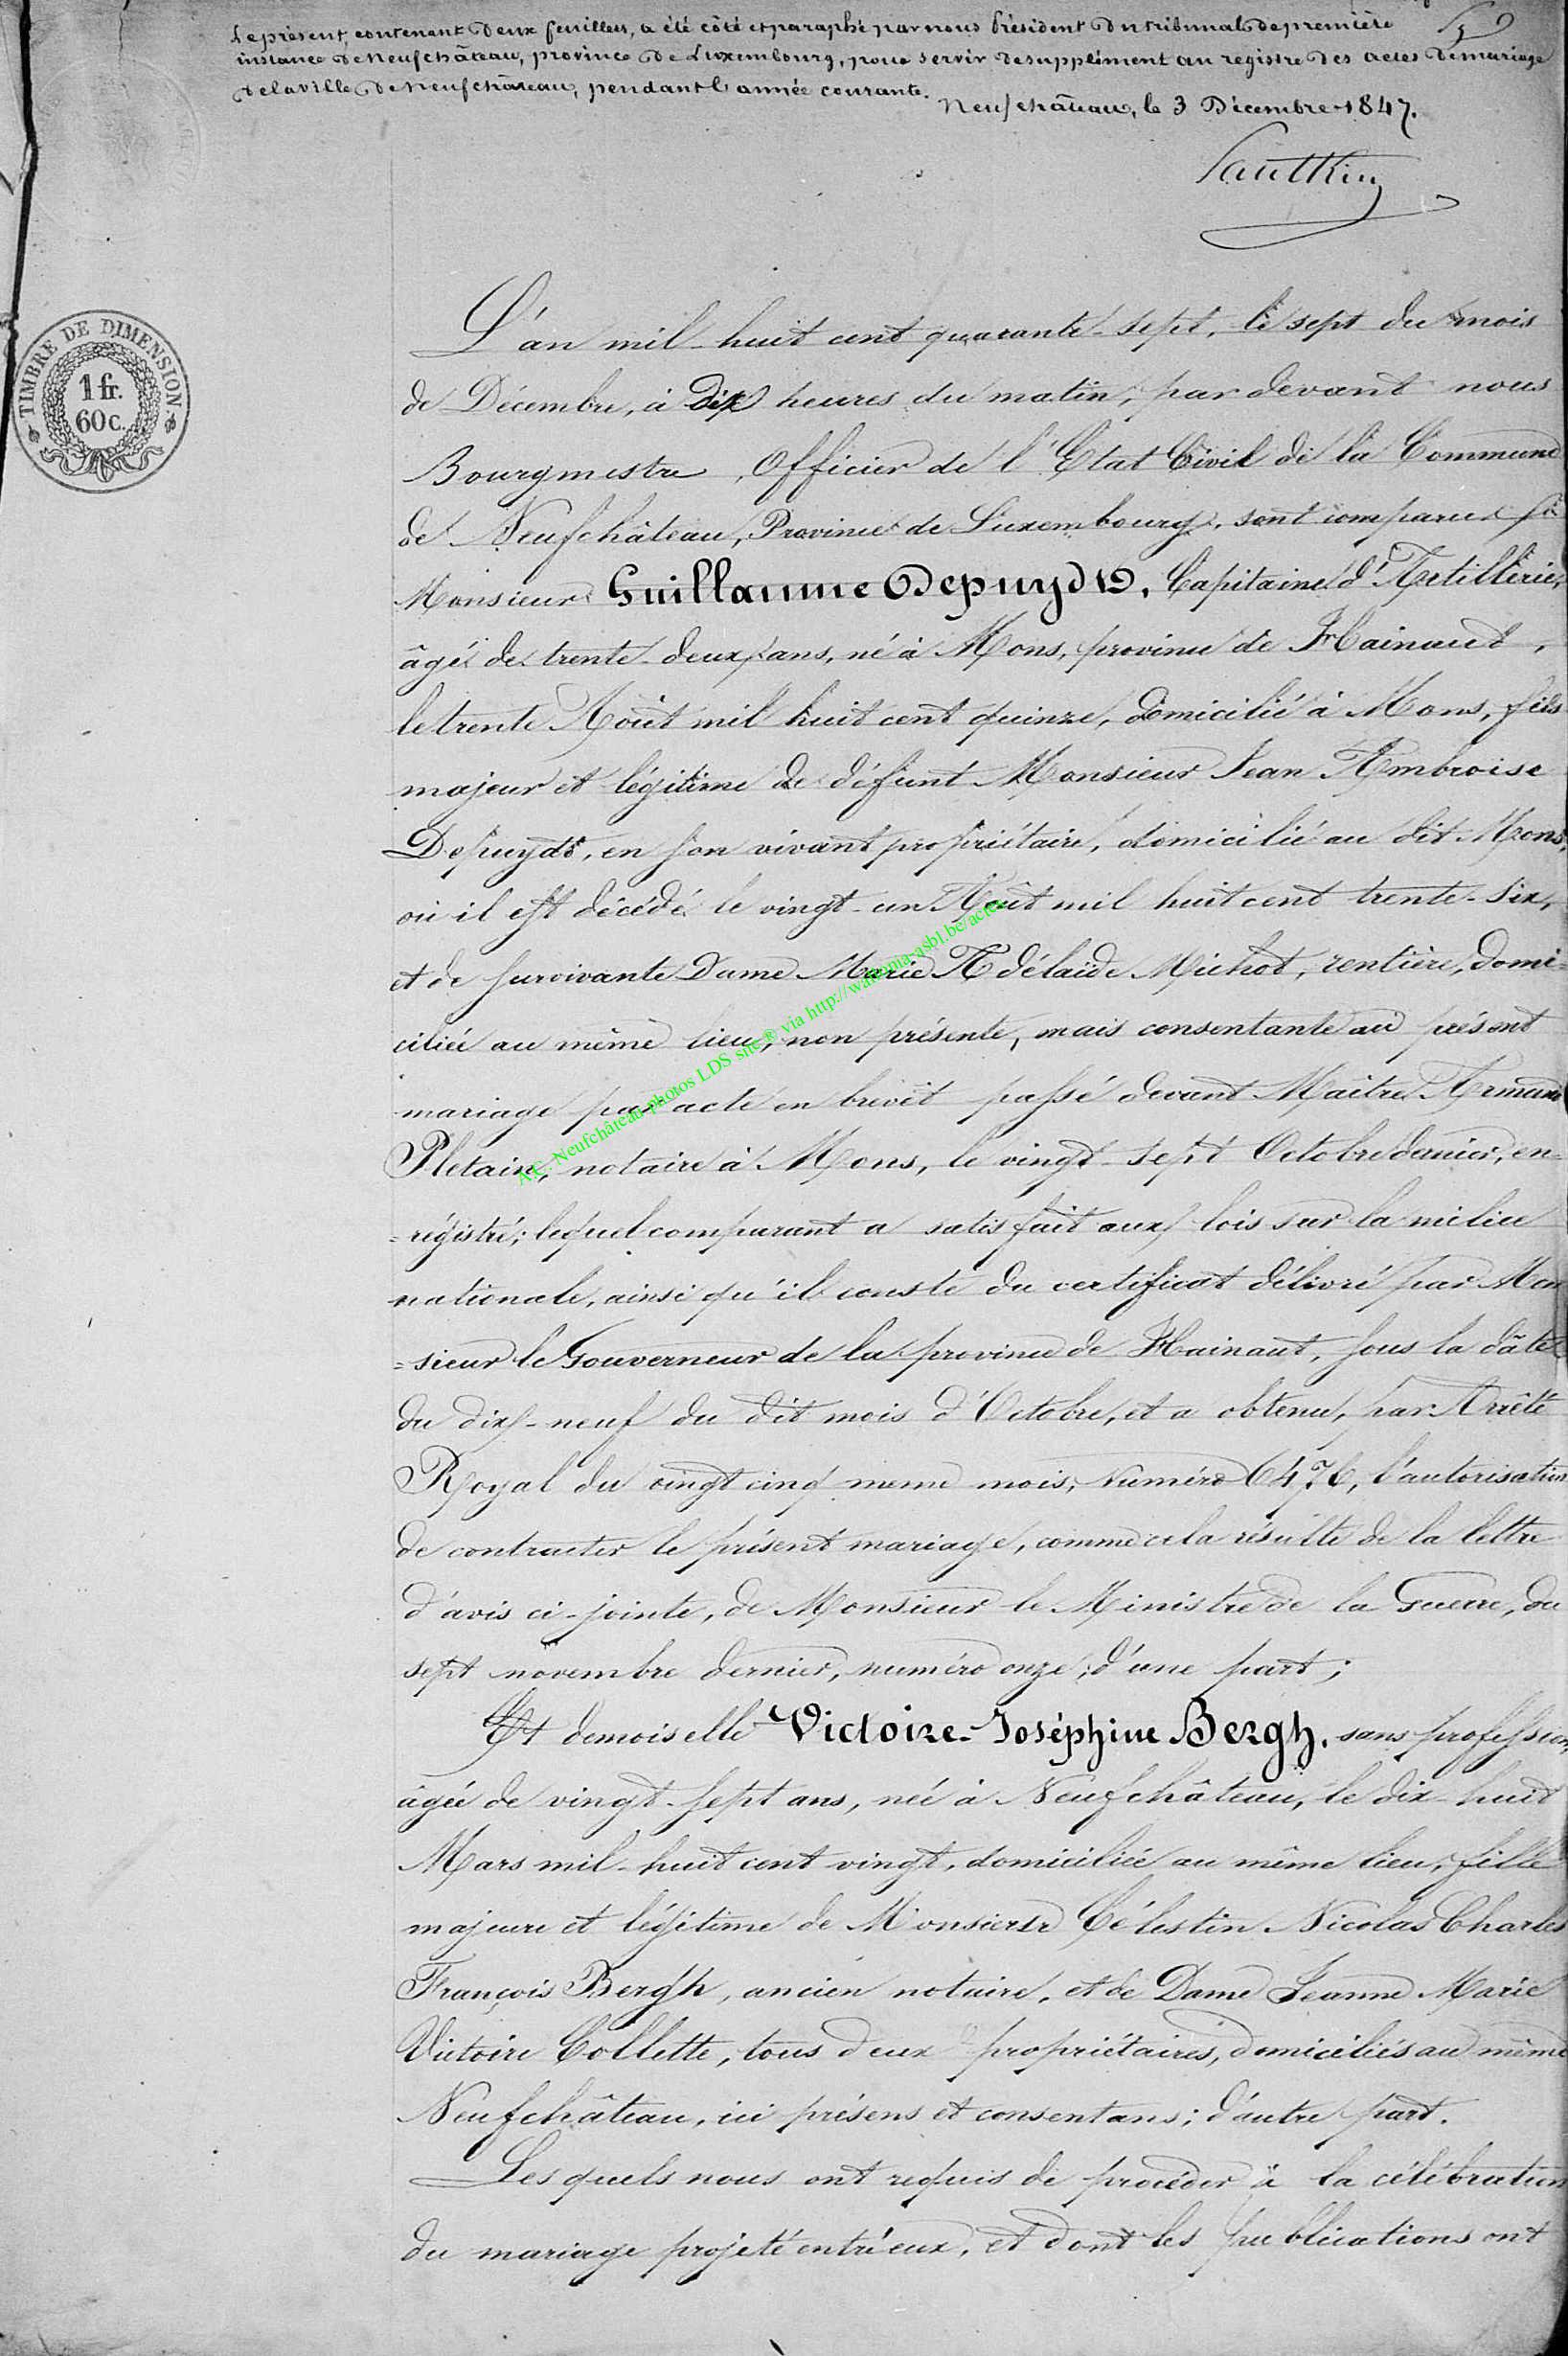 Le présent, contenant deux feuilles, a été côté et paraphé par nous Président du tribunal de première
instance de Neufchâteau, province de Luxembourg, pour servir de suppliment au registre des actes de mariage
de la ville de Neufchâteau, pendant l'année courante.
Neufchâteau, le 3 Décembre 1847.
TIMBRE DE DIMENSION
1 fr.
60 c.
L'an mil-huit cent quarante-sept, le sept du mois
de Décembre, à Dix heures du matin, par devant nous
Bourgmestre, Officier de l'Etat Civil de la Commune
de Neufchâteau, Province de Luxembourg, sont comparus
Monsieur Guillaume Depuydt, Capitaine d'Artillerie,
âgé de trente-deux ans, né à Mons, province de Hainaut,
le trente Août mil huit cent quinze, domicilié à Mons, fils
majeur et légitime de défunt Monsieur Jean Ambroise
Depuydt, en son vivant propriétaire, domicilié au dit Mons,
où il est décédé le vingt-un Août mil huit cent trente-six,
et de survivante Dame Marie Adélaïde Michot, rentière, domi
ciliée au même lieu, non présente, mais consentante au présent
mariage par acte en brevet passé devant Maître Armand
Pletain, notaire à Mons, le vingt-sept Octobre dernier, en=
=régistré; lequel comparant a satisfait aux lois sur la milice
nationale, ainsi qu'il conste du certificat délivré par Mon
=sieur le Gouverneur de la province de Hainaut, sous la dâte
du dix-neuf du dit mois d'Octobre, et a obtenu, par Arrêté
Royal du vingt cinq meme mois, Numéro 6476, l'autorisation
de contracter le présent mariage, comme cela résulte de la lettre
d'avis ci-jointe, de Monsieur le Ministre de la Guerre, du
sept novembre dernier, numéro onze; d'une part;
Et demoiselle Victoire-Joséphine Bergh, sans profession,
âgée de vingt-sept ans, née à Neufchâteau, le dix-huit
Mars mil-huit cent vingt, domiciliée au même lieu, fille
majeure et légitime de Monsieur Célestin Nicolas Charles
François Bergh, ancien notaire, et de Dame Jeanne Marie
Victoire Collette, tous deux propriétaires, domiciliés au même
Neufchâteau, ici présens et consentans; d'autre part.
Lesquels nous ont requis de procéder à la célébration
du mariage projeté entr'eux, et dont les publications ont
A.C. Neufchâteau photos LDS site ® via http://wallonia-asbl.be/actes